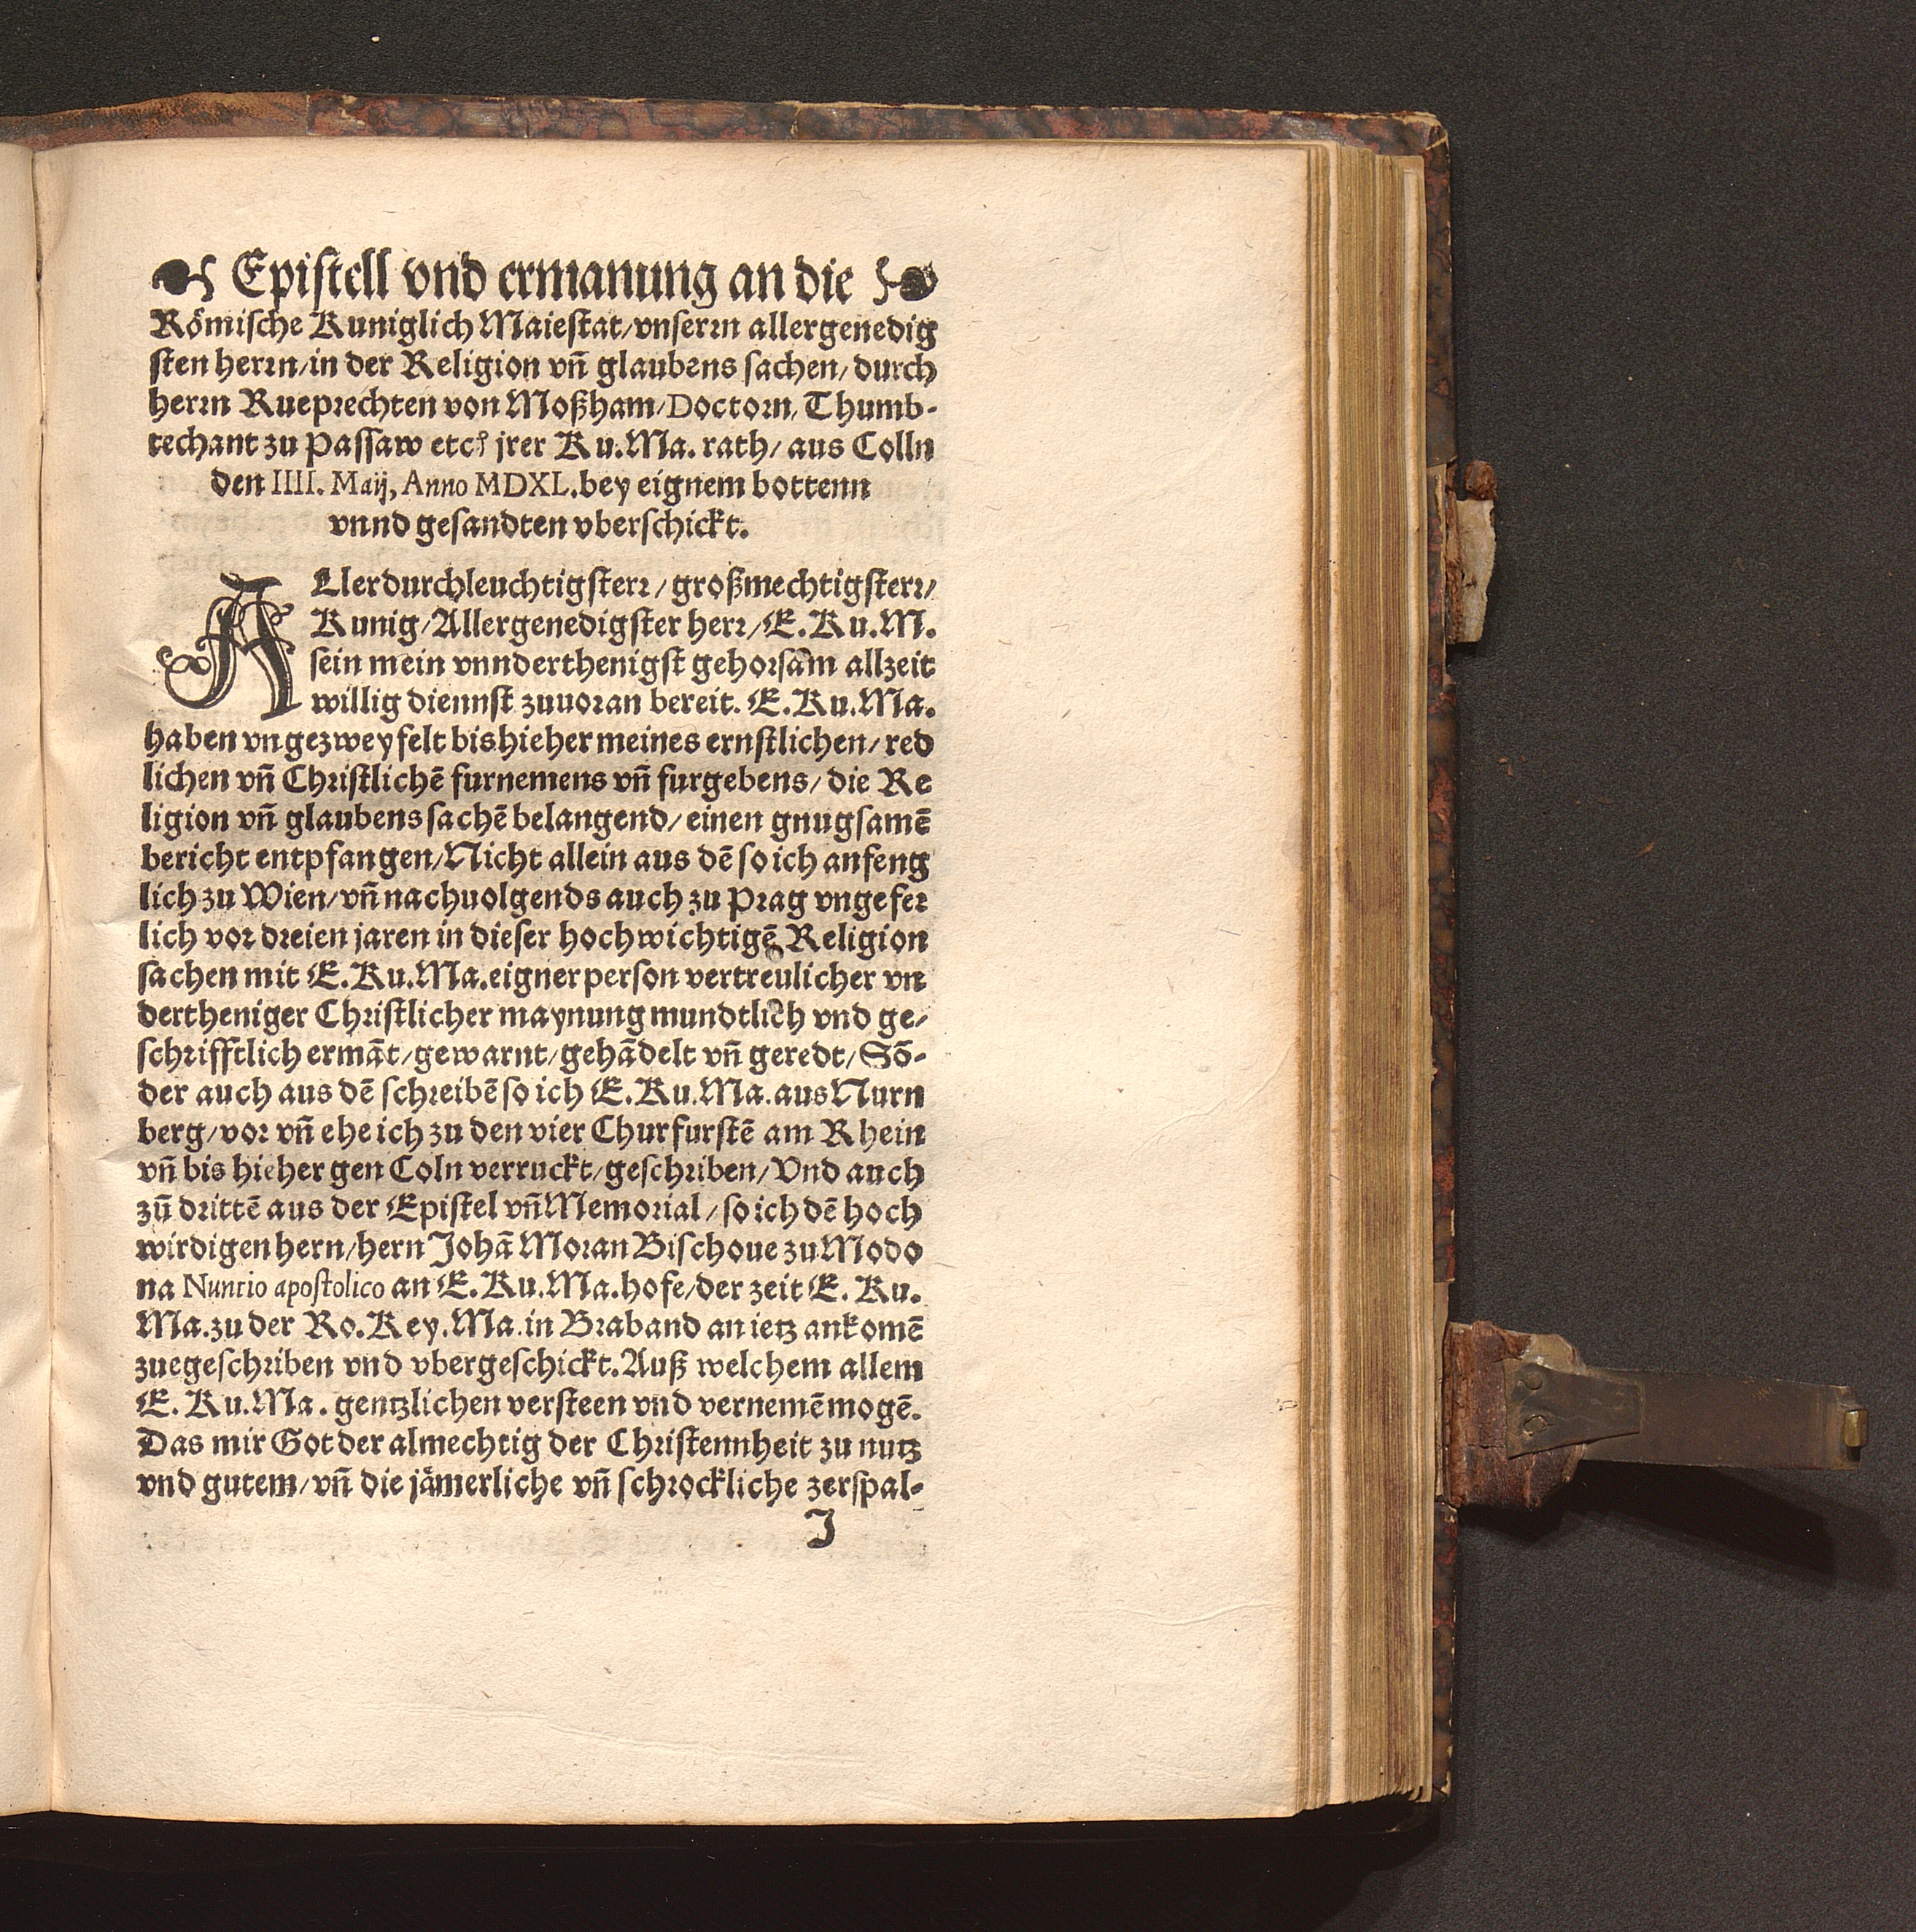 Epistell vnd ermanung an die
Römische Kuniglich Maiestat/vnserrn allergenedig
sten herrn/in der Religion vn̄ glaubens sachen/durch
herrn Rueprechten von Moßham/Doctorn, Thumb-
techant zu Passaw etc? jrer Ku.Ma. rath/ aus Colln
den IIII. Maij, Anno MDXL.bey eignem bottenn
vnnd gesandten vberschickt.
ALlerdurchleuchtigsterr/großmechtigsterr/
Kunig/Allergenedigster herr/E.Ku.M.
sein mein vnnderthenigst gehorsam allzeit
willig diennst zuuoran bereit. E.Ku.Ma.
haben vngezweyfelt bishieher meines ernstlichen/red
lichen vn̄ Christlichē furnemens vn̄ furgebens/die Re
ligion vn̄ glaubens sachē belangend/einen gnugsamē
bericht entpfangen/Nicht allein aus dē so ich anfeng
lich zu Wien/vn̄ nachuolgends auch zu Prag vngefer
lich vor dreien jaren in dieser hochwichtigē Religion
sachen mit E.Ku.Ma.eigner person vertreulicher vn
dertheniger Christlicher maynung mundtlich vnd ge-
schrifftlich ermāt/gewarnt/gehādelt vn̄ geredt/Sō-
der auch aus dē schreibē so ich E.Ku.Ma.aus Nurn
berg/vor vn̄ ehe ich zu den vier Churfurstē am Rhein
vn̄ bis hieher gen Coln verruckt/geschriben/Vnd auch
zū drittē aus der Epistel vn̄ Memorial/so ich dē hoch
wirdigen hern/hern Johā Moran Bischoue zu Modo
na Nuntio apostolico an E.Ku.Ma.hofe/der zeit E. Ku.
Ma.zu der Ro.Key.Ma.in Braband an ietz ankomē
zuegeschriben vnd vbergeschickt.Auß welchem allem
E.Ku.Ma. gentzlichen versteen vnd vernemē mogē.
Das mir Got der almechtig der Christennheit zu nutz
vnd gutem/vn̄ die jämerliche vn̄ schrockliche zerspal-
J